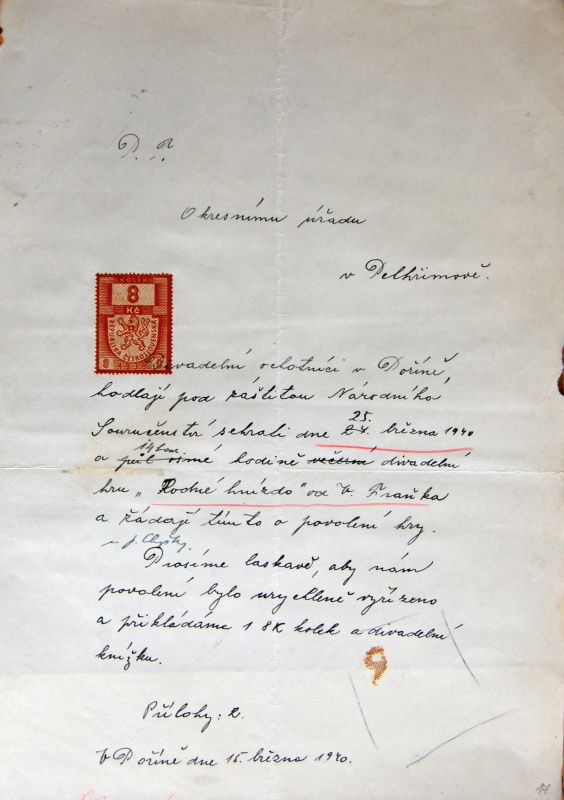 P. T.
Okresnímu úřadu
v Pelhřimově.
KOLEK
8
Kč
REPUBLIKA ČESKOSLOVENSKÁ
8
8
Divadelní ochotníci v Pořině,
hodlají pod záštitou Národního
25.
Souručenství sehrati dne 24. března 1940
a půl osmé hodině večerní divadelní
hru „Rodné hnízdo" od V. Fraňka
a žádají tímto o povolení hry.
Prosíme laskavě, aby nám
povolení bylo urychleně vyřízeno
a přikládáme 1 8K kolek a divadelní
knížku.
9
Přílohy: 2.
V Pořině dne 15. března 1940.